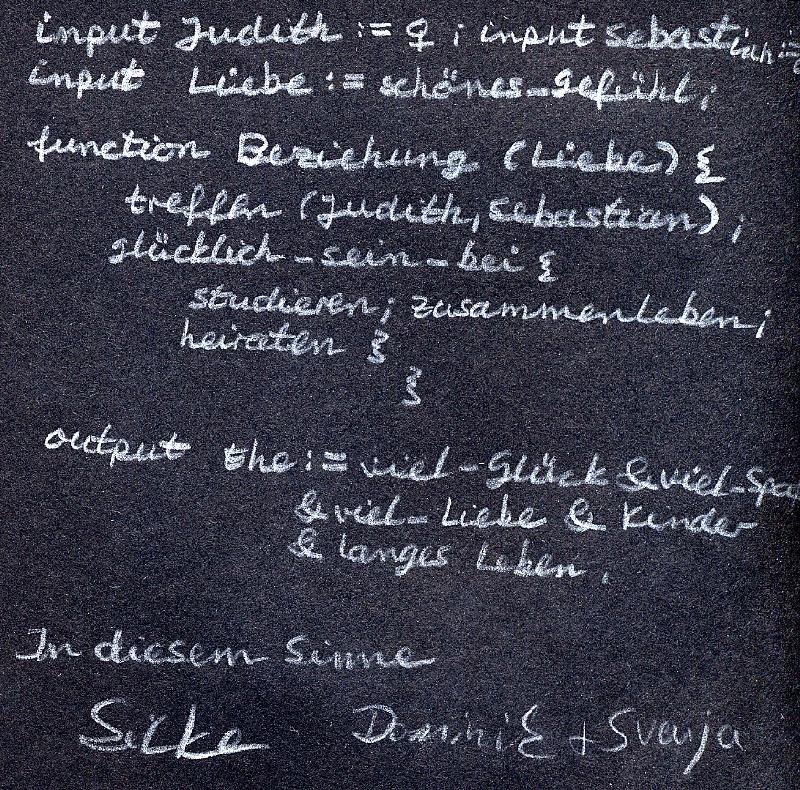 input Judith := ♀ ; input sebastian :=
input Liebe := schönes-gefühl;
function Beziehung (Liebe) {
treffen (Judith, sebastian);
glücklich-sein-bei {
studieren; zusammenleben;
heiraten }
}
output Ehe := viel-Glück & viel-Spa
& viel-Liebe & Kinder
& langes Leben.
In diesem Sinne
Silke Dominik + Svanja